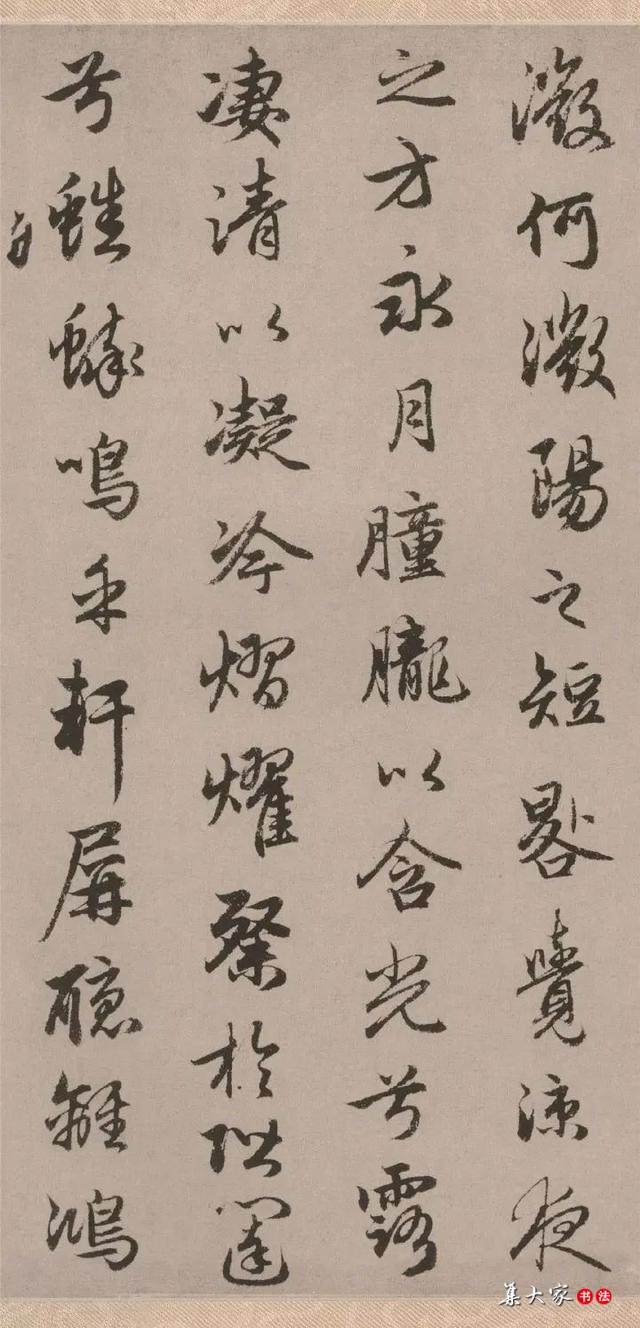 微何微陽之短晷覺涼夜
之方永月朣朧以含光兮露
凄清以凝冷熠燿粲於階闥
兮蟋蟀鳴乎軒屏聽離鴻
集大家书法